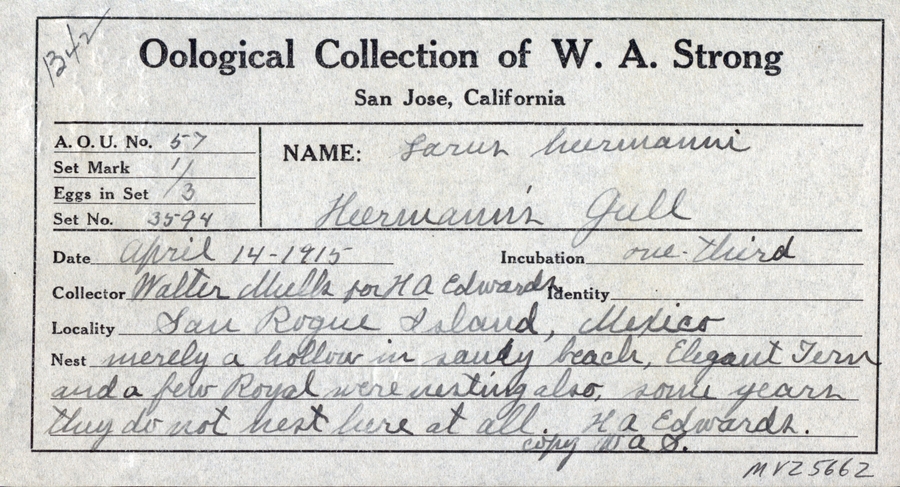 1342
Oological Collection of W. A. Strong
San Jose, California
A. O. U. No. 57
Set Mark 1/
Eggs in Set /3
Set No. 3594
NAME: Larus heermanni
Heermann's Gull
Date April 14-1915 Incubation one-third
Collector Walter Mills for H A Edwards Identity
Locality San Roque Island, Mexico
Nest merely a hollow in sandy beach, Elegant Tern
and a few Royal were nesting also, some years
they do not nest here at all. H A Edwards.
copy W A S.
MVZ 5662